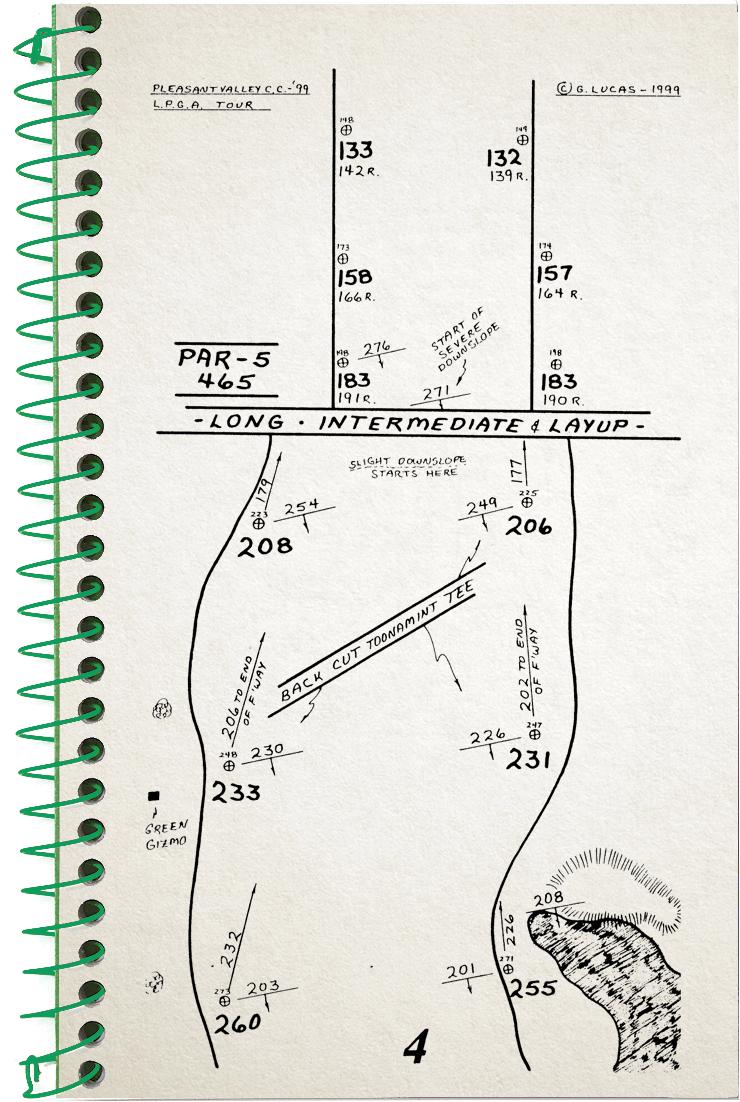 PLEASANT VALLEY C.C.-'99
L.P.G.A. TOUR
© G. LUCAS - 1999
148
133
142 R.
149
132
139 R.
173
158
166 R.
174
157
164 R.
START OF
SEVERE
DOWNSLOPE
PAR-5
465
198
276
183
191 R.
271
198
183
190 R.
-LONG · INTERMEDIATE & LAYUP-
SLIGHT DOWNSLOPE
STARTS HERE
179
223
254
208
177
225
249
206
BACK CUT TOONAMINT TEE
206 TO END
OF F'WAY
248
230
233
202 TO END
OF F'WAY
247
226
231
GREEN
GIZMO
208
232
273
203
260
226
271
201
255
4